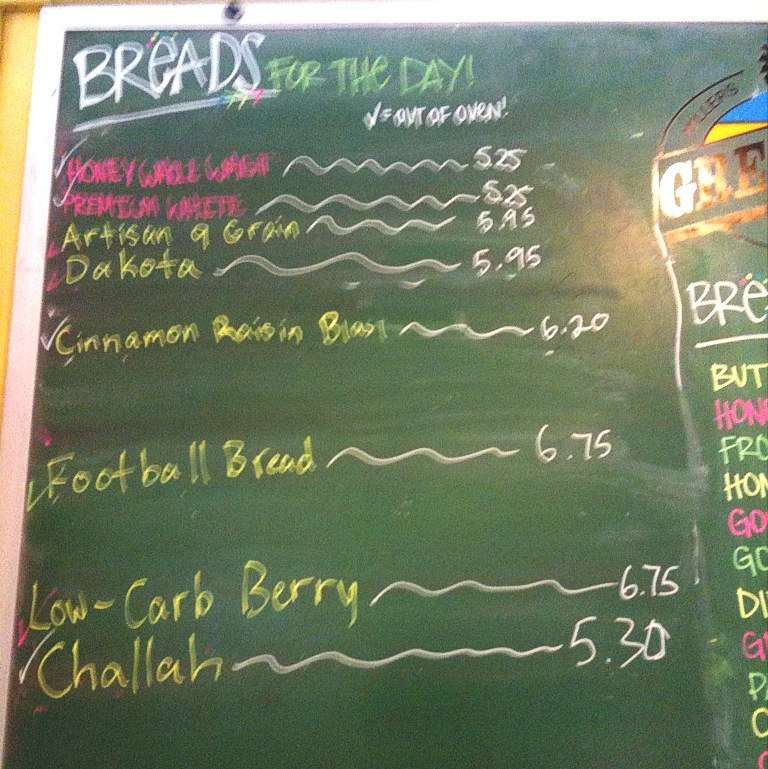 BREADS FOR THE DAY!
✓=OUT OF OVEN!
✓ HONEY WHOLE WHEAT 5.25
✓ PREMIUM WHITE 5.25
Artisan 9 Grain 5.95
Dakota 5.95
✓ Cinnamon Raisin 6.20
✓ Football Bread 6.75
Low-Carb Berry 6.75
✓ Challah 5.30
GRE
BRE
BUT
HON
FRO
HON
GO
GO
DI